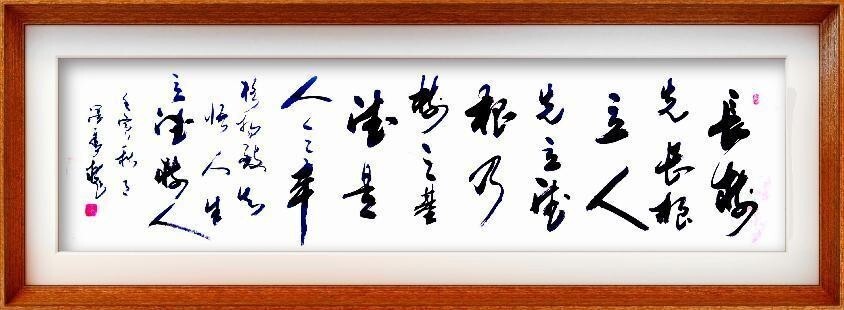 長樹
先長根
立人
先立德
根乃
樹之基
德是
人之本
格物致知
悟人生
立德樹人
壬寅秋月